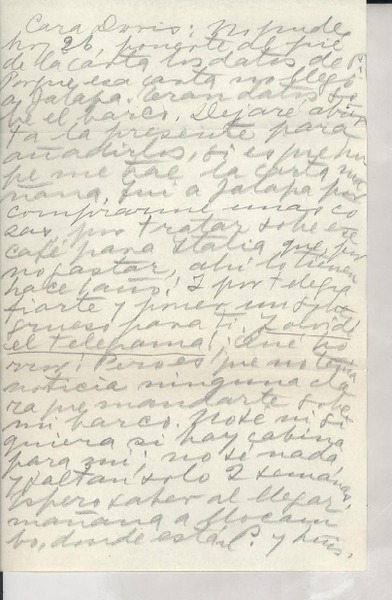 Cara Doris: No pude
hoy 26, ponerte al pie
de la carta los datos de P.
Porque esa carta no llegó
a Jalapa. Eran datos so-
bre el barco. Dejaré abier-
ta la presente para
añadirlos, si es que
me trae la carta ma-
ñana. Fui a Jalapa por
comprarme unas co-
sas, por tratar sobre ese
café para Italia que, por
no gastar, ahí lo tienen
hace 1 año! I por telegra-
fiarte y poner un sobre
grueso para ti. I olvidé
el telegrama! Qué ho-
rror! Pero es que no tenía
noticia ninguna cla-
ra que mandarte sobre
mi barco. No sé ni si-
quiera si hay cabina
para mí; no sé nada,
y faltan solo 2 semanas.
Espero saber al llegar
mañana a Mocam-
bo, donde está P. y